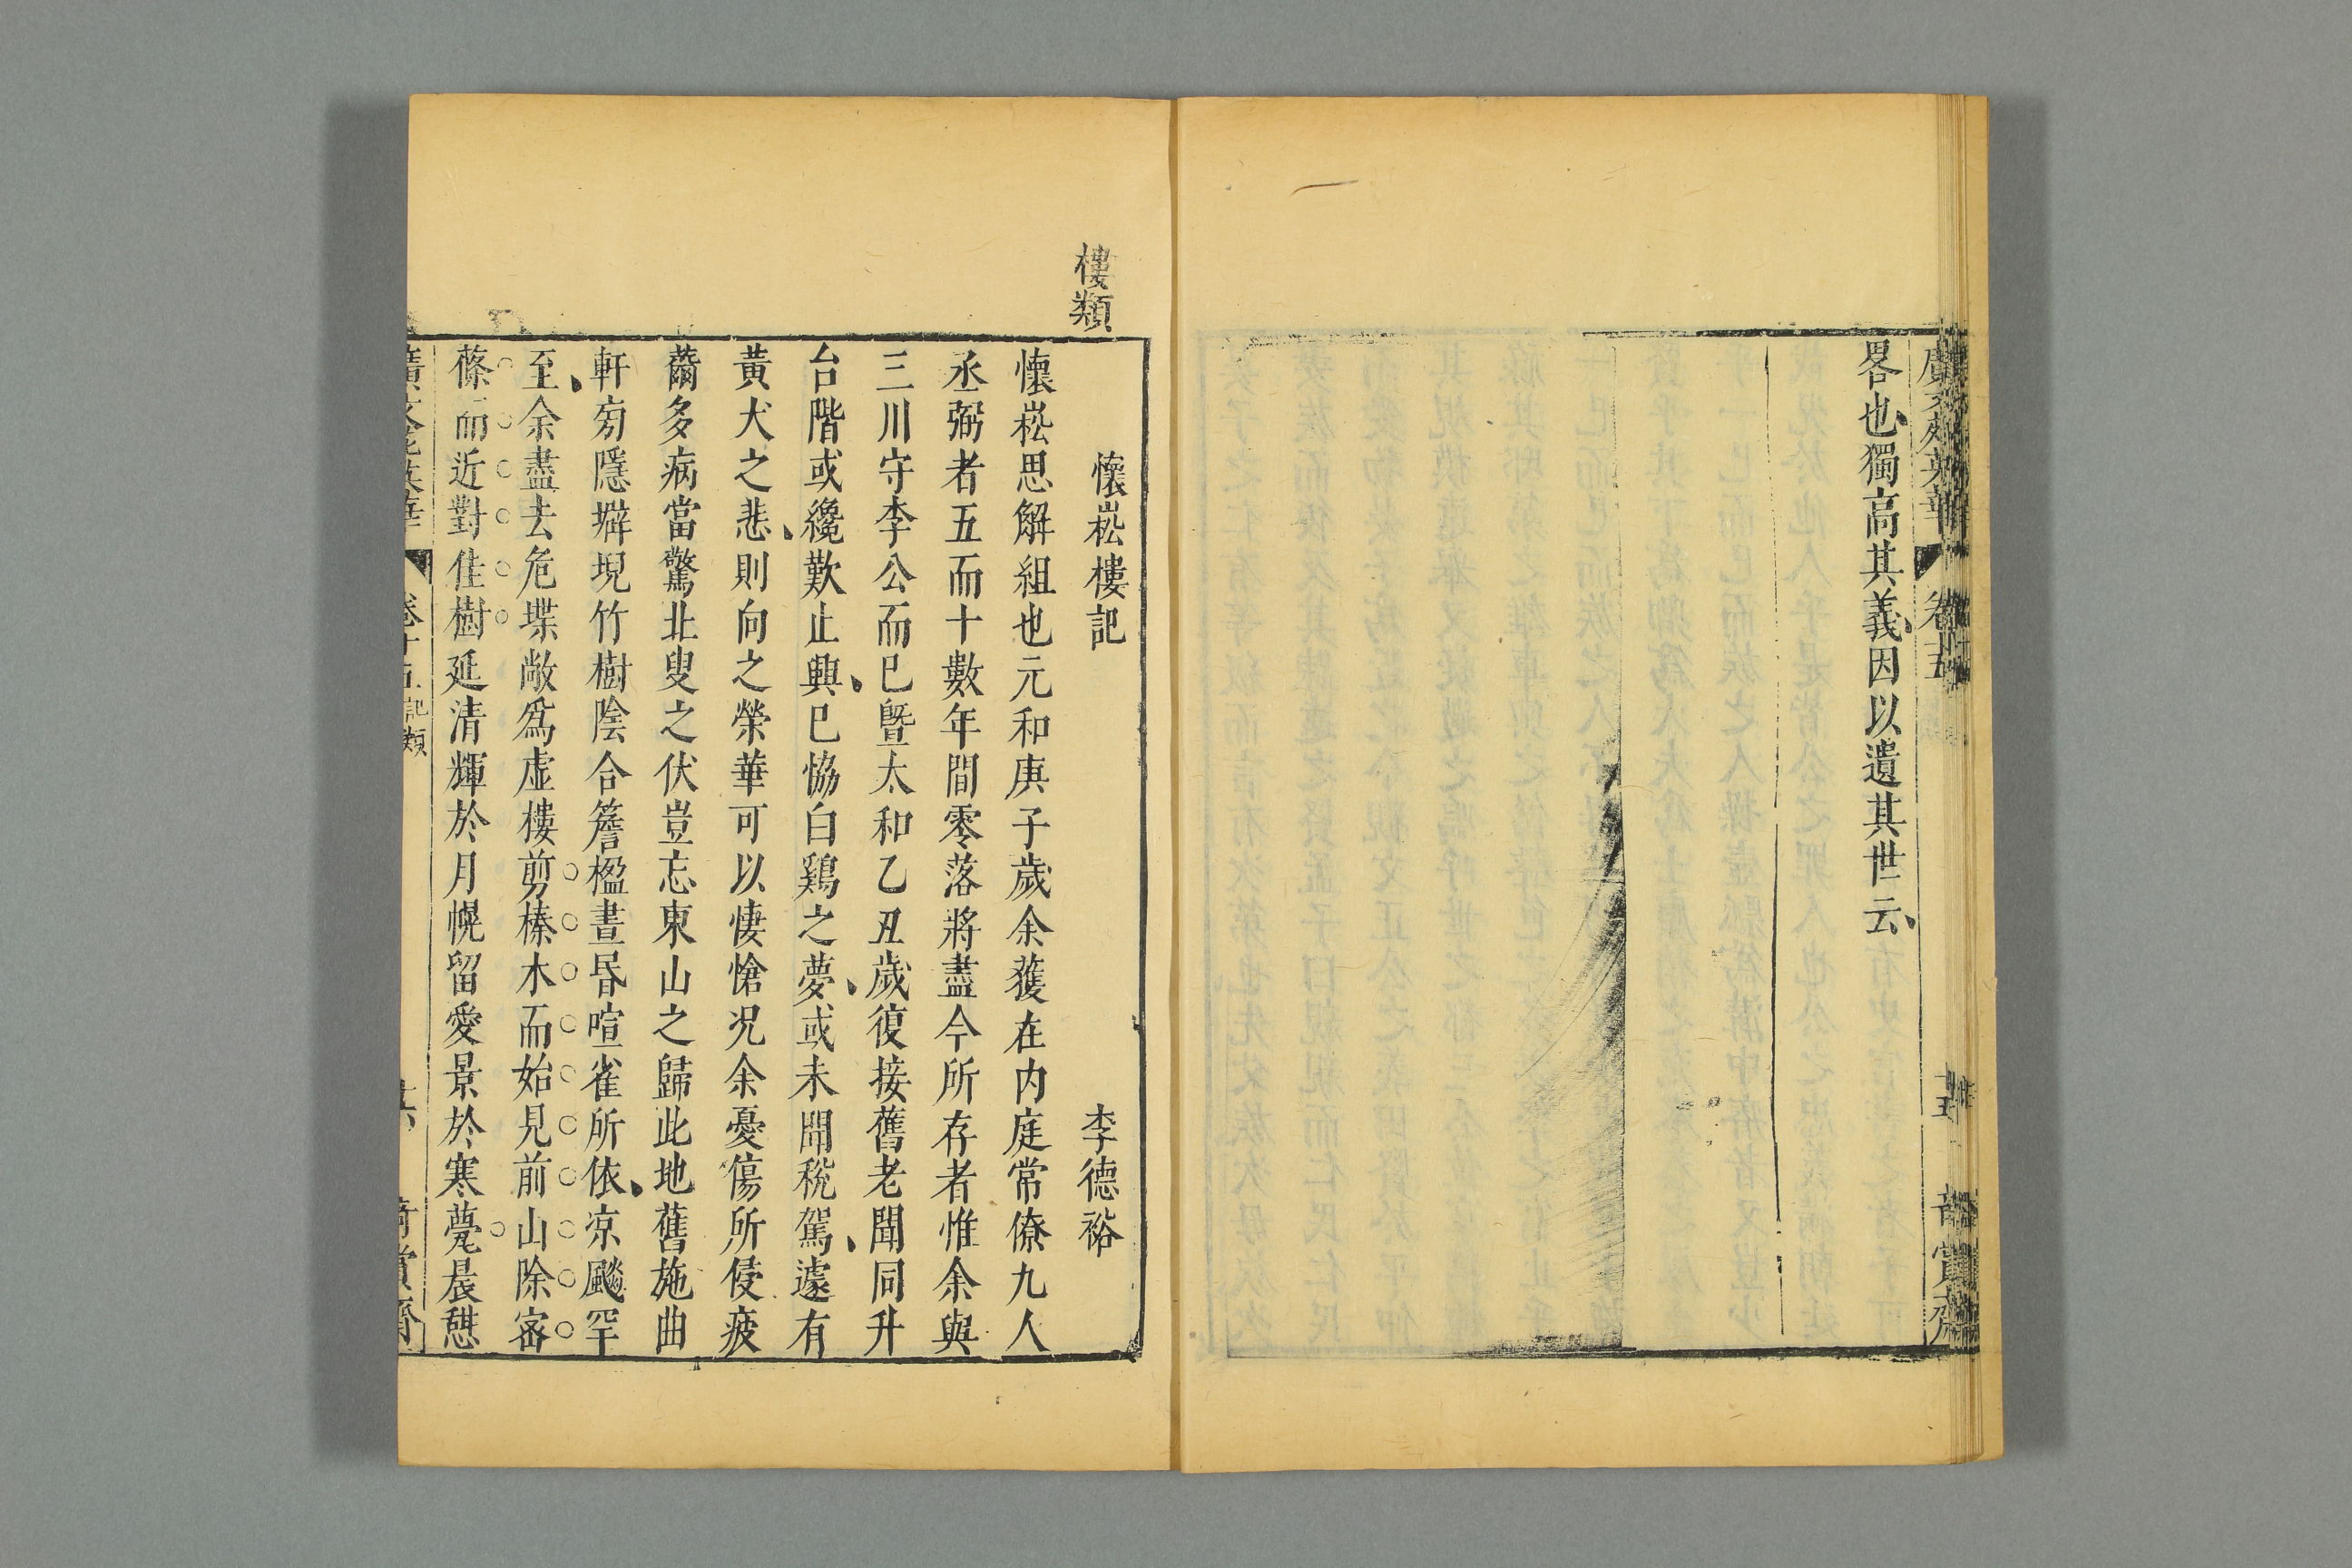 畧也獨高其義因以遺其世云
樓類
懷崧樓記
李德裕
懷崧思解組也元和庚子歲余獲在内庭常僚九人
丞弼者五而十數年間零落將盡今所存者惟余與
三川守李公而已曁太和乙丑歲復接舊老聞同升
台階或纔歎止輿已恊白鷄之夢或未聞稅駕遽有
黃犬之悲則向之榮華可以悽愴况余憂傷所侵疲
薾多病當驚北叟之伏豈忘東山之歸此地舊施曲
軒旁隱墀堄竹樹陰合簷楹晝昬喧雀所依凉飈罕
至余盡去危堞敞爲虛樓剪榛木而始見前山除密
蓧而近對佳樹延清輝於月幌留愛景於寒甍晨憇